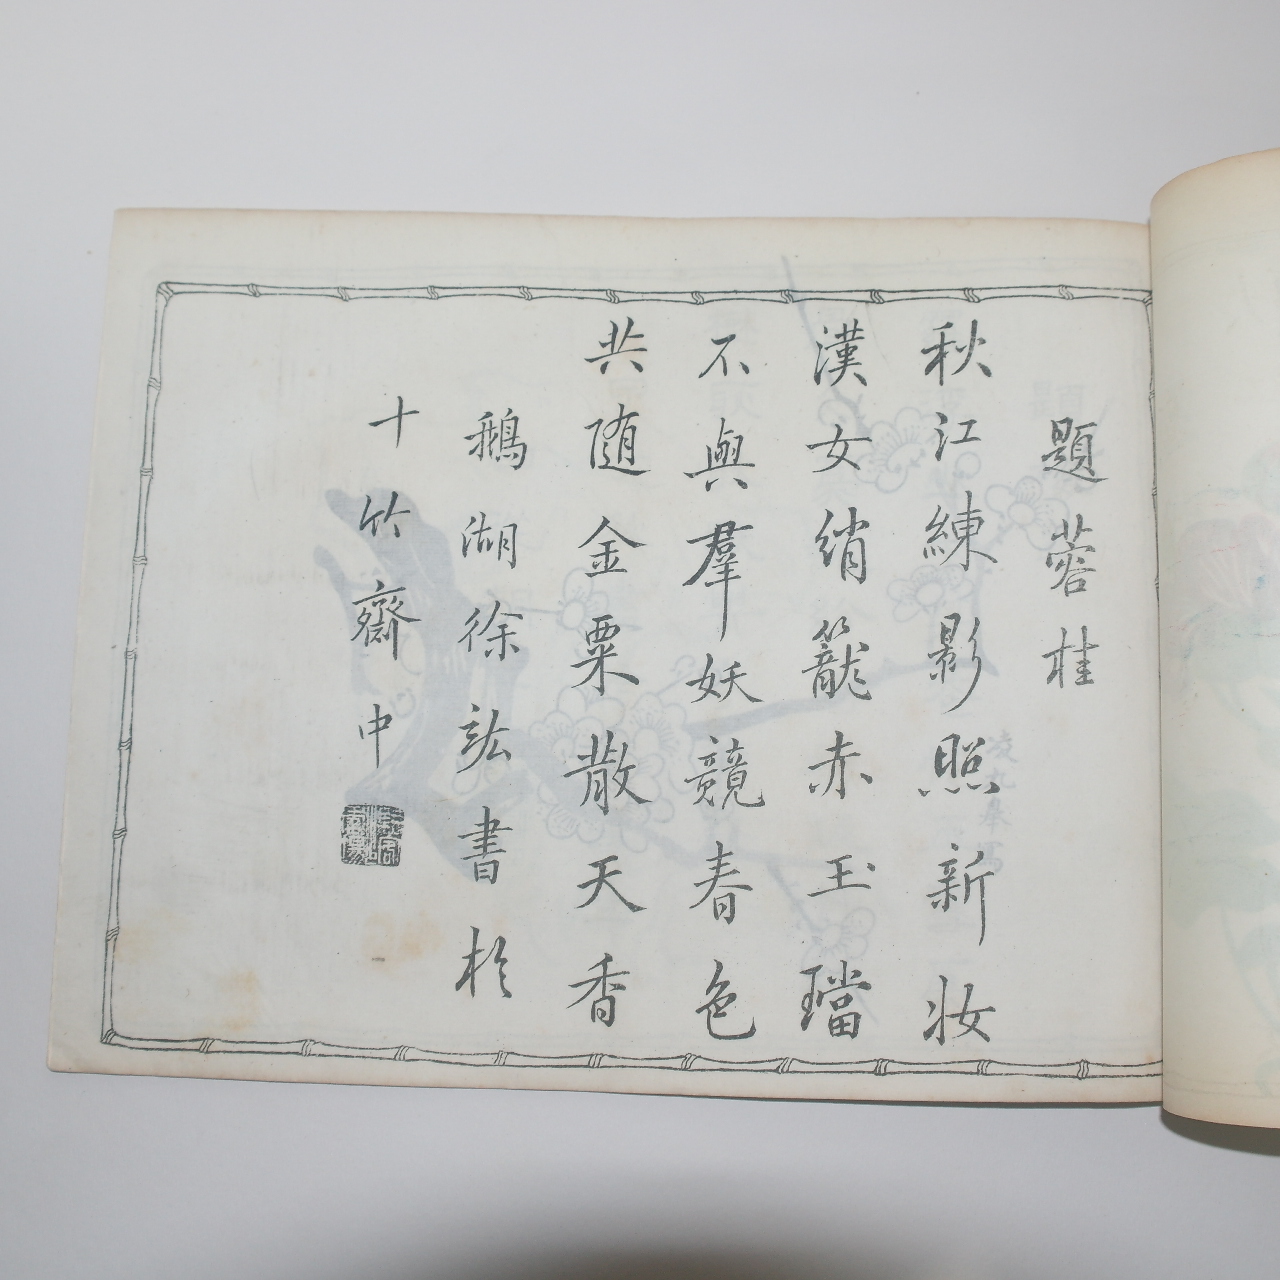 題蓉桂
秋江練影照新妝
漢女綃籠赤玉璫
不與羣妖競春色
共随金粟散天香
鵝湖徐𥫃書於
十竹齋中